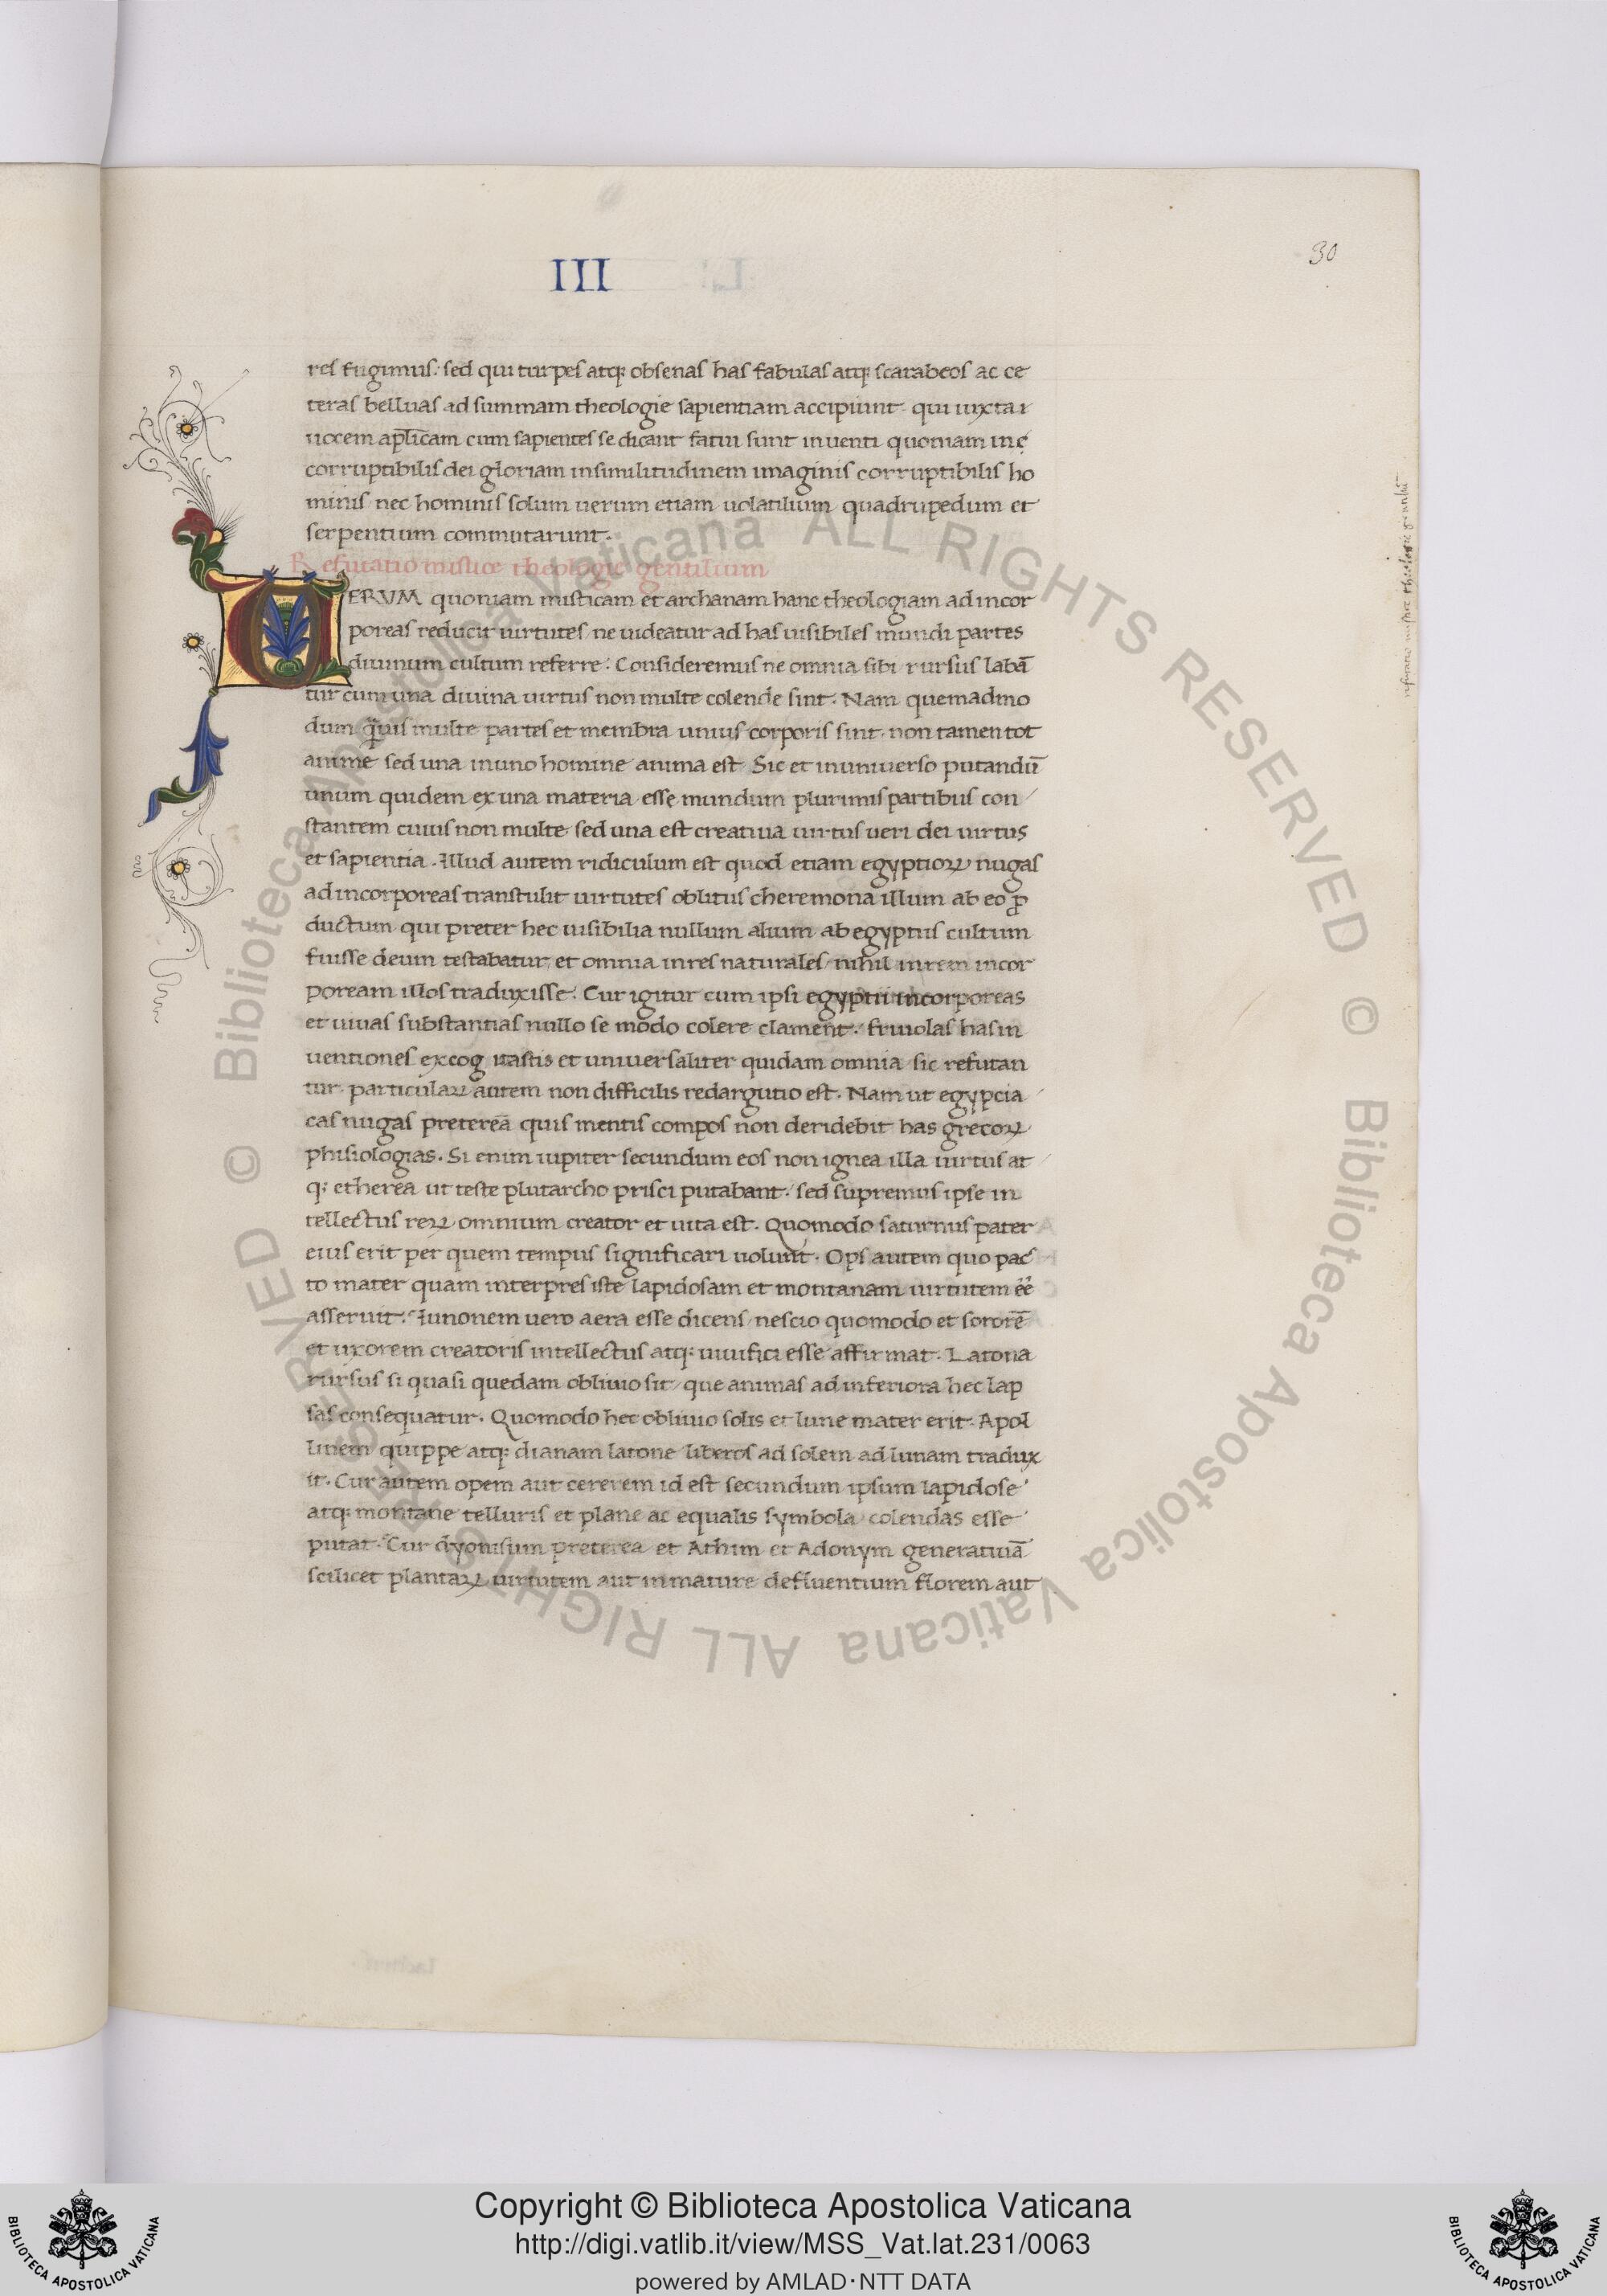 III
30
res fugimus: sed qui turpes atq; obsenas has fabulas atq; scarabeos ac ce
teras belluas ad summam theologie sapientiam accipiunt qui iuxta
uocem apl̄icam cum sapientes se dicant fatui sunt inuenti quoniam inc
corruptibilis dei gloriam insimilitudinem imaginis corruptibilis ho
minis nec hominis solum uerum etiam uolatilium quadrupedum et
serpentium commutarunt.
Refutatio mistice theologie gentilium
VERVM quoniam misticam et archanam hanc theologiam ad incor
poreas reducit uirtutes ne uideatur ad has uisibiles mundi partes
diuinum cultum referre: Consideremus ne omnia sibi rursus labā
tur cum una diuina uirtus non multe colende sint. Nam quemadmo
dum q̄uis multe partes et membra unius corporis sint non tamen tot
anime sed una inuno homine anima est Sic et inuniuerso putandū
unum quidem ex una materia esse mundum plurimis partibus con
stantem cuius non multe sed una est creatiua uirtus ueri dei uirtus
et sapientia. Illud autem ridiculum est quod etiam egyptioꝝ nugas
ad incorporeas transtulit uirtutes oblitus cheremona illum ab eo ꝓ
ductum qui preter hec uisibilia nullum alium ab egyptiis cultum
fuisse deum testabatur et omnia inres naturales nihil inrem incor
poream illos traduxisse. Cur igitur cum ipsi egyptii incorporeas
et uiuas substantias nullo se modo colere clament. friuolas has in
uentiones excog itastis et uniuersaliter quidam omnia sic refutan
tur particulaꝝ autem non difficilis redargutio est. Nam ut egypcia
cas nugas pretereā quis mentis compos non deridebit has grecoꝝ
phisiologias. Si enim iupiter secundum eos non ignea illa uirtus at
q; etherea ut teste plutarcho prisci putabant. sed supremus ipse in
tellectus reꝝ omnium creator et uita est. Quomodo saturnus pater
eius erit per quem tempus significari uolunt. Ops autem quo pac
to mater quam interpres iste lapidosam et montanam uirtutem ēē
asseruit. Iunonem uero aera esse dicens nescio quomodo et sororē
et uxorem creatoris intellectus atq; uiuifici esse affirmat. Latona
rursus si quasi quedam obliuio sit que animas ad inferiora hec lap
sas consequatur. Quomodo hec obliuio solis et lune mater erit. Apol
linem quippe atq; dianam latone liberos ad solem ad lunam tradux
it. Cur autem opem aut cererem id est secundum ipsum lapidose
atq; montane telluris et plane ac equalis symbola colendas esse
putat. Cur dyonisium preterea et Athim et Adonym generatiuā
scilicet plantaꝝ uirtutem aut inmature defluentium florem aut
© Biblioteca Apostolica Vaticana ALL RIGHTS RESERVED © Biblioteca Apostolica Vaticana ALL RIGHTS RESERVED
Copyright © Biblioteca Apostolica Vaticana
http://digi.vatlib.it/view/MSS_Vat.lat.231/0063
powered by AMLAD·NTT DATA
BIBLIOTECA APOSTOLICA VATICANA
BIBLIOTECA APOSTOLICA VATICANA